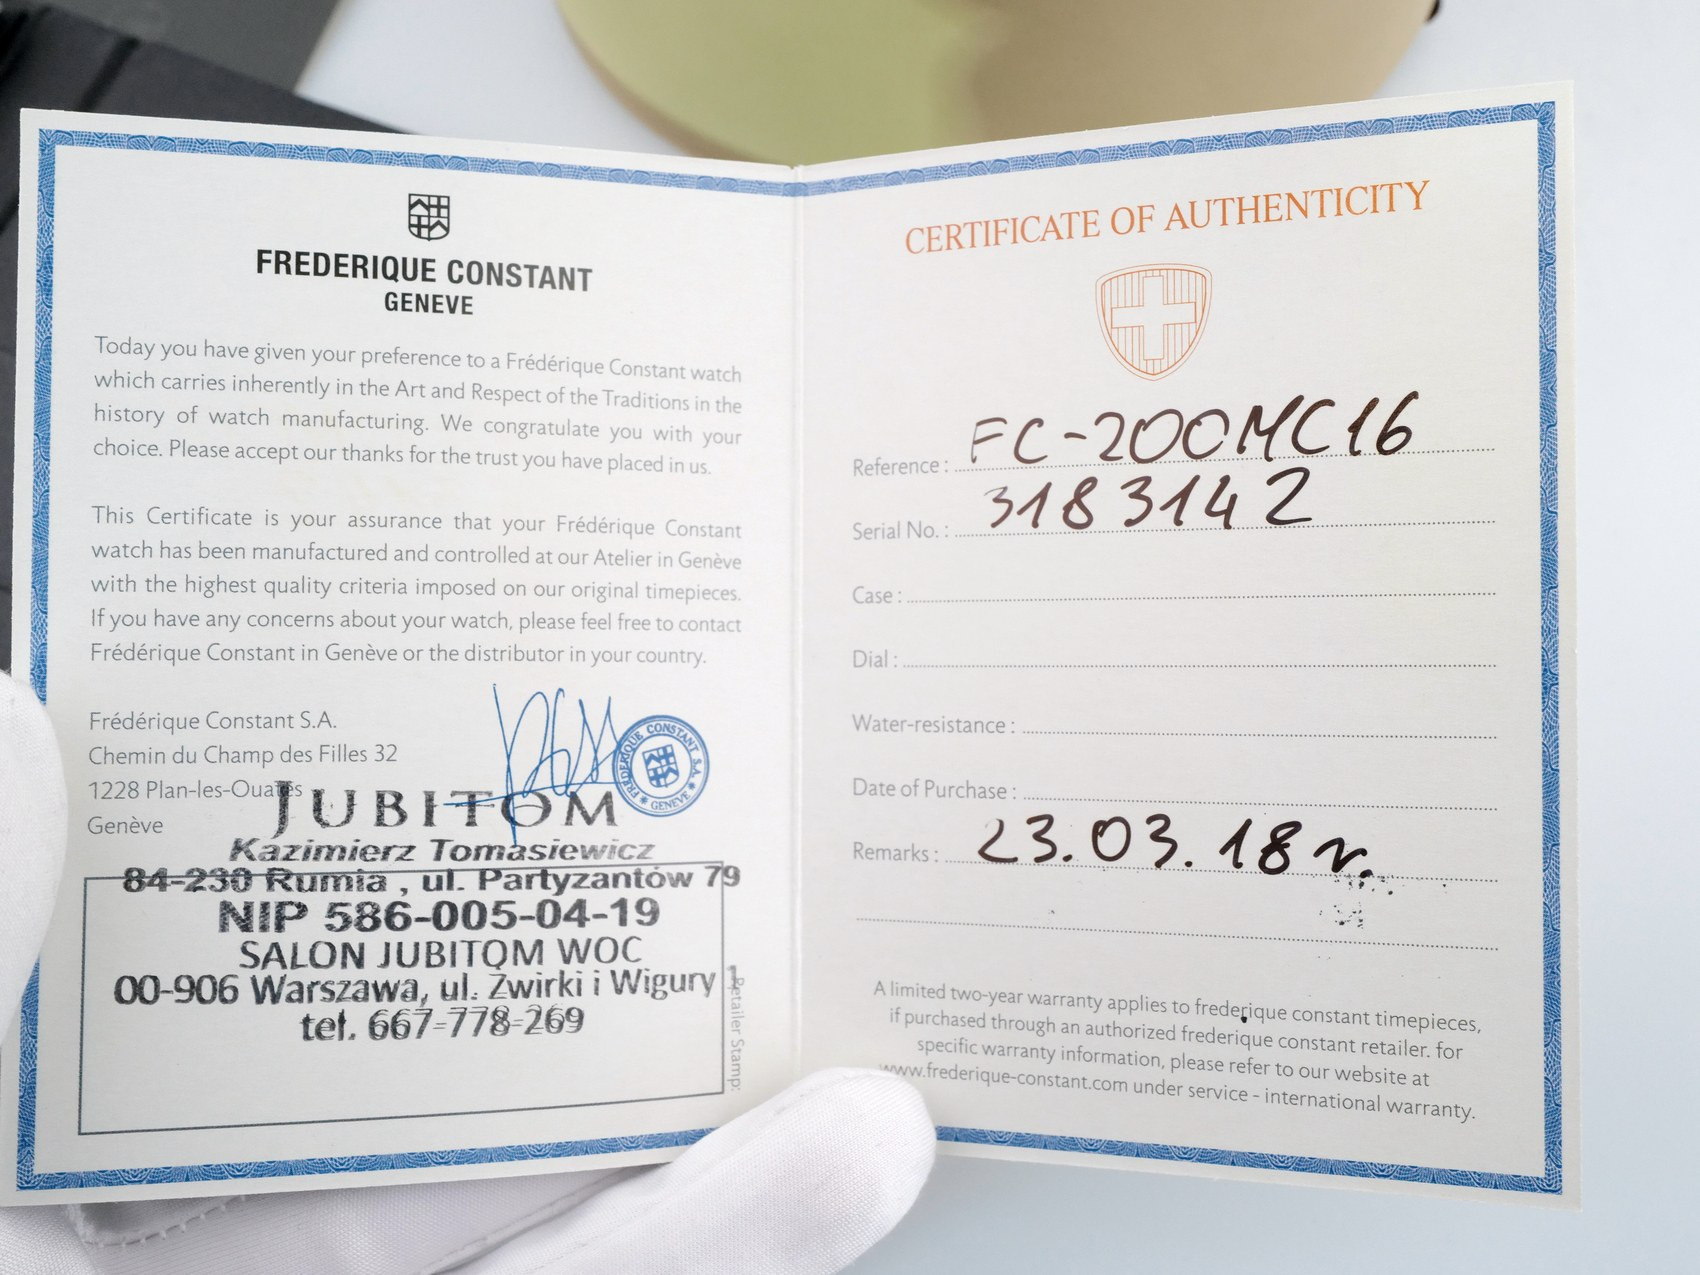 FREDERIQUE CONSTANT
GENEVE
Today you have given your preference to a Frédérique Constant watch
which carries inherently in the Art and Respect of the Traditions in the
history of watch manufacturing. We congratulate you with your
choice. Please accept our thanks for the trust you have placed in us.
This Certificate is your assurance that your Frédérique Constant
watch has been manufactured and controlled at our Atelier in Genève
with the highest quality criteria imposed on our original timepieces.
If you have any concerns about your watch, please feel free to contact
Frédérique Constant in Genève or the distributor in your country.
Frédérique Constant S.A.
Chemin du Champ des Filles 32
1228 Plan-les-Ouates
Genève
FREDERIQUE CONSTANT S.A.
GENEVE
JUBITOM
Kazimierz Tomasiewicz
84-230 Rumia , ul. Partyzantów 79
NIP 586-005-04-19
SALON JUBITOM WOC
00-906 Warszawa, ul. Żwirki i Wigury 1
tel. 667-778-269
Retailer Stamp:
CERTIFICATE OF AUTHENTICITY
Reference : FC-200MC16
Serial No. : 3183142
Case :
Dial :
Water-resistance :
Date of Purchase :
Remarks : 23.03.18 r.
A limited two-year warranty applies to frederique constant timepieces,
if purchased through an authorized frederique constant retailer. for
specific warranty information, please refer to our website at
www.frederique-constant.com under service - international warranty.